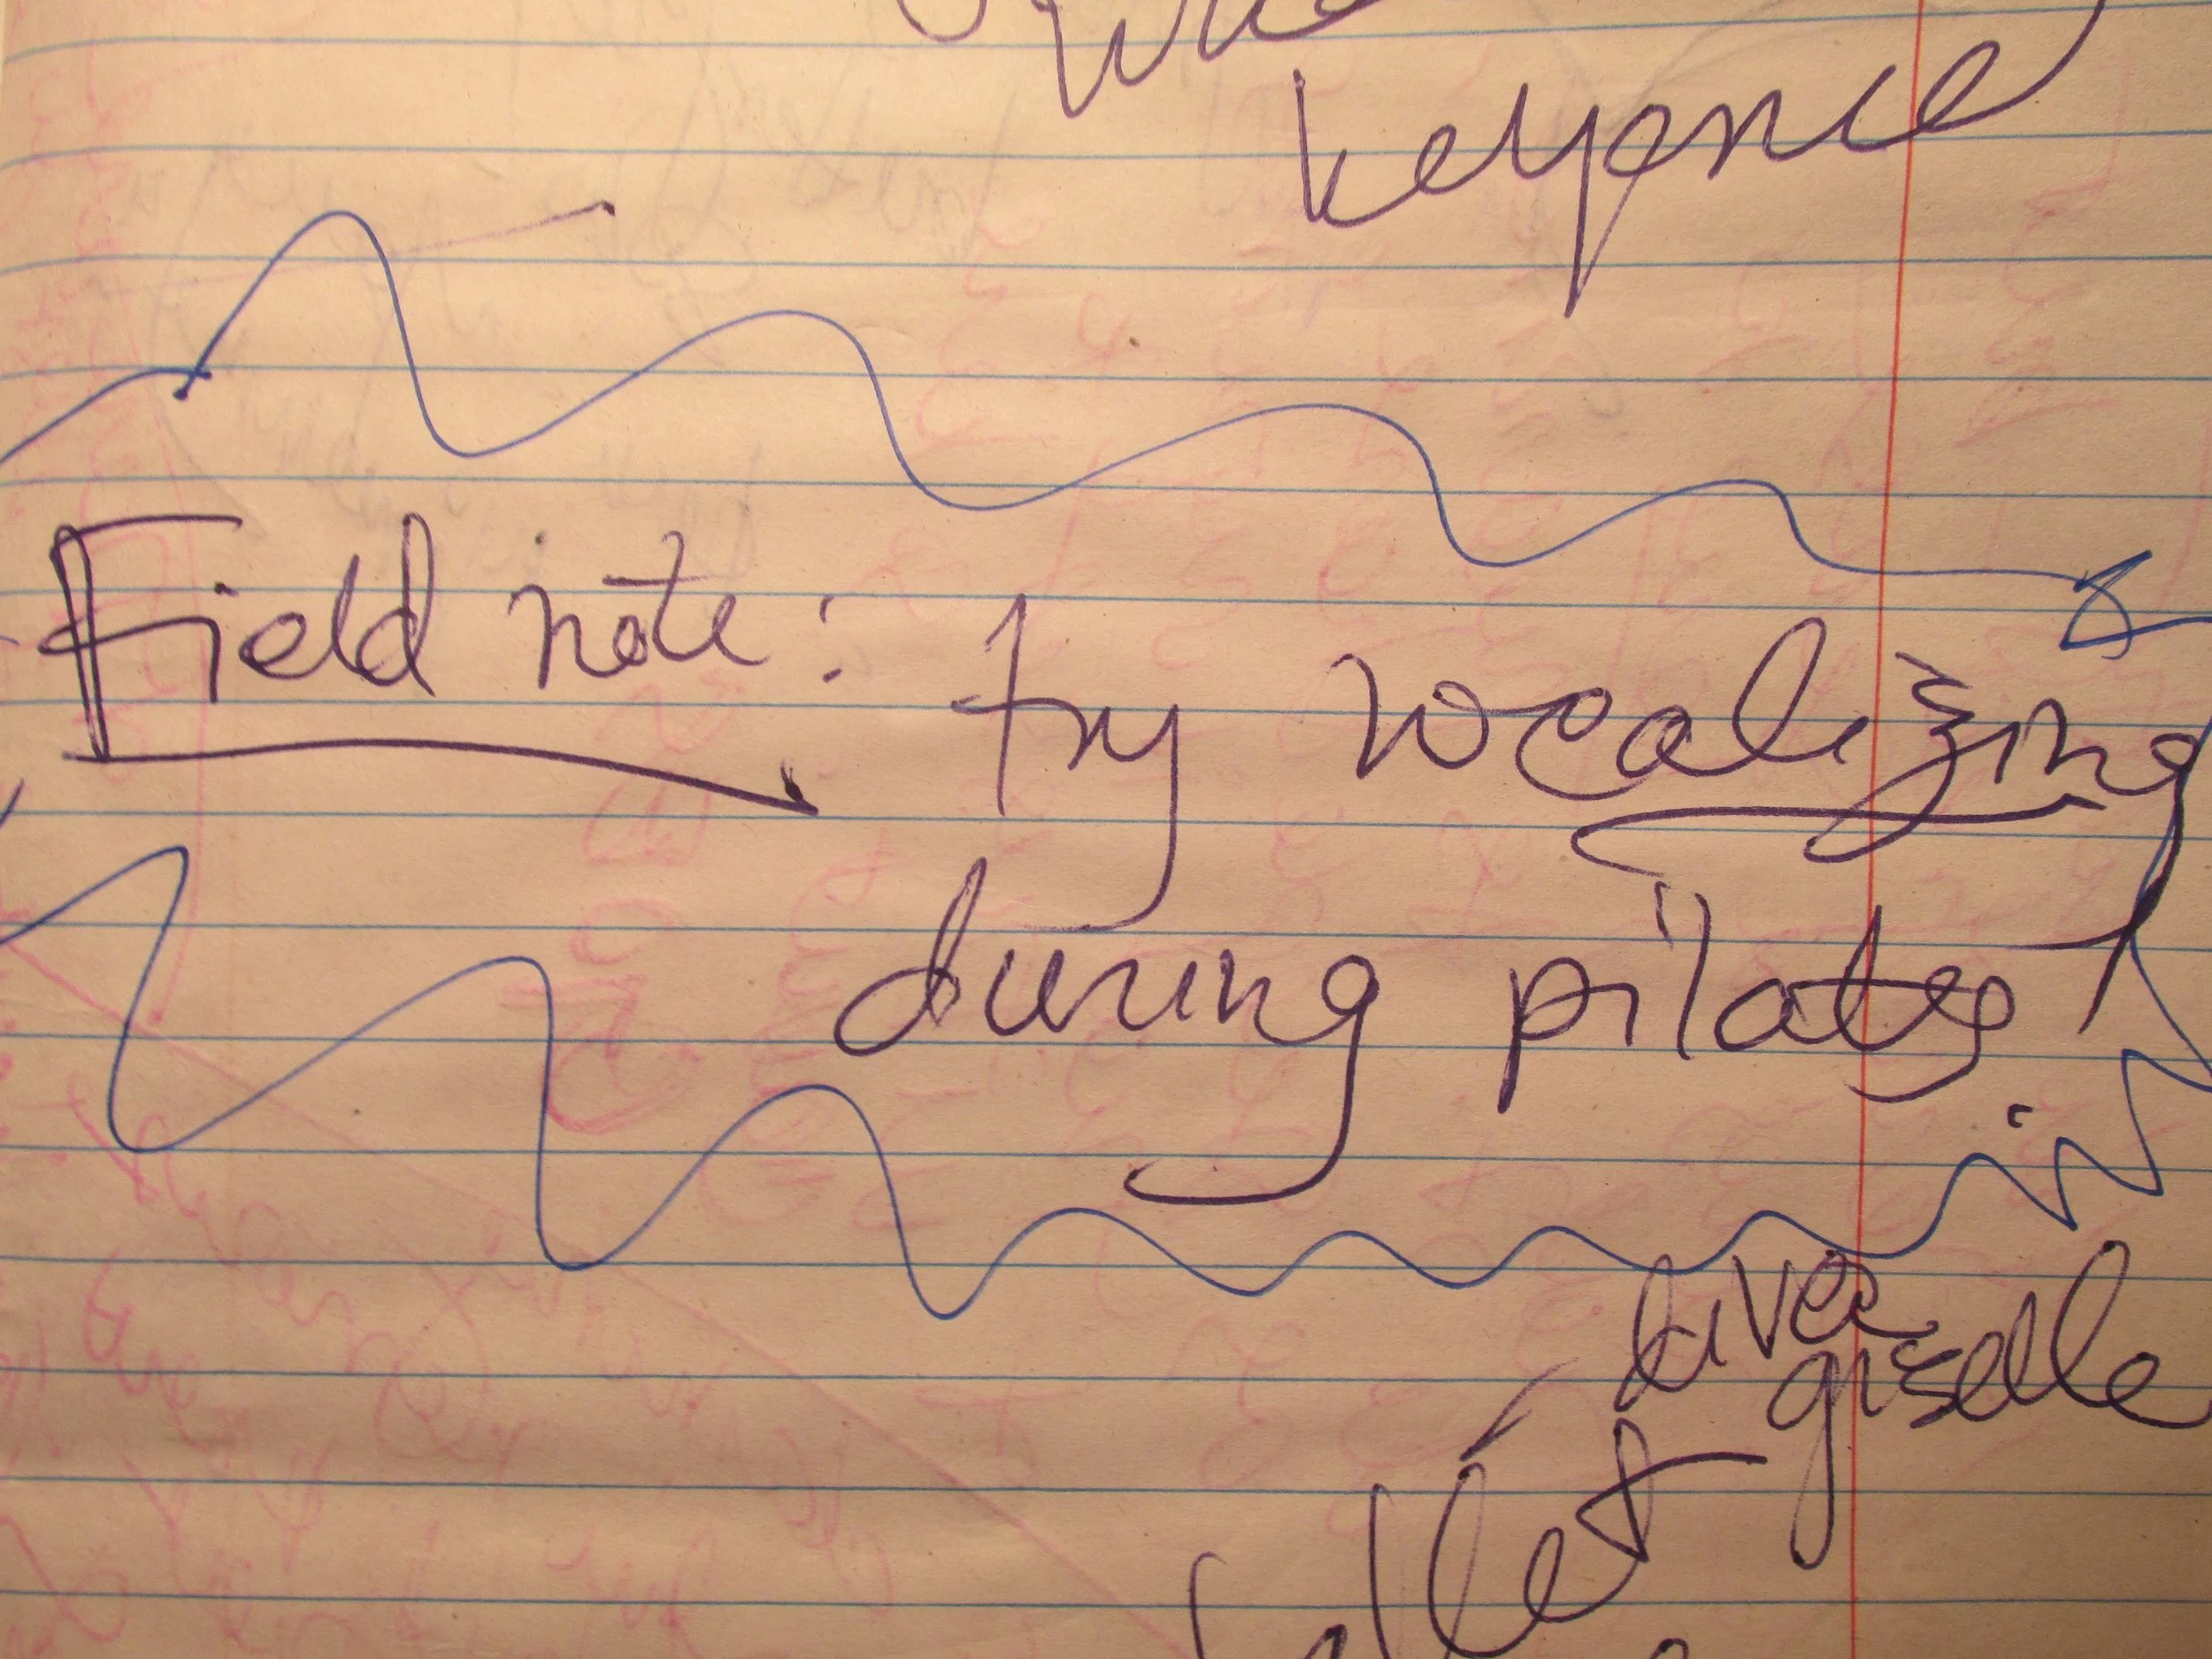 keyence
Field note: try vocalizing
during pilates!
giselle